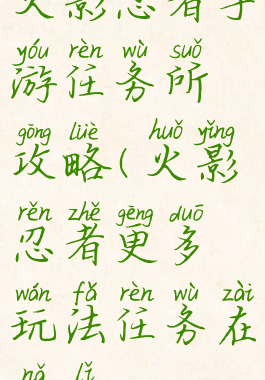 火影忍者手
yóu rèn wù suǒ
游任务所
gōng lüè huǒ yǐng
攻略(火影
rěn zhě gēng duō
忍者更多
wán fǎ rèn wù zài
玩法任务在
nǎ lǐ